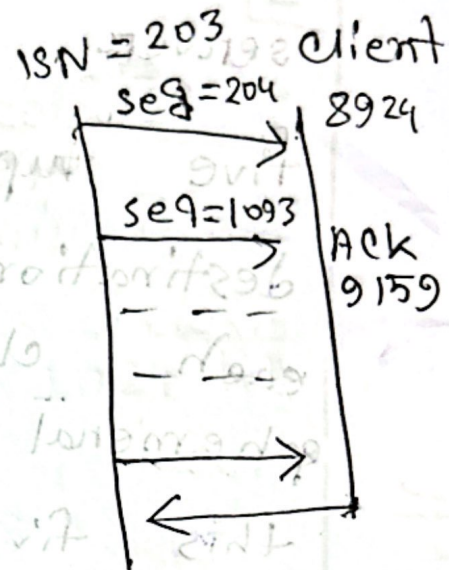 ISN = 203 Client
seq=204 8924
seq=1093
ACK
9159